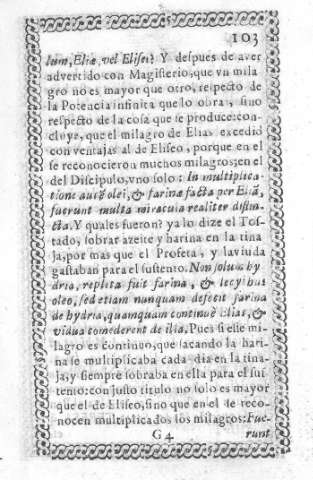 103
lum, Eliæ, vel Elisei? Y despues de aver
advertido con Magisterio, que vn mila
gro no es mayor que otro, respecto de
la Potencia infinita que lo obra, sino
respecto de la cosa que se produce: con
cluye, que el milagro de Elias excediò
con ventajas al de Eliseo, porque en el
se reconocieron muchos milagros; en el
del Discipulo, vno solo: In multiplica
tione autẽ olei, & farinæ facta per Eliã,
fuerunt multa miracula realiter distin-
cta. Y quales fueron? ya lo dize el Tos-
tado, sobrar azeite y harina en la tina
ja, por mas que el Profeta, y la viuda
gastaban para el sustento. Non solum hy
dria, repleta fuit farina, & lecythus
oleo, sed etiam nunquam defecit farina
de hydria, quamquam continuè Elias, &
vidua comederent de illa. Pues si esse mi-
lagro es continuo, que sacando la hari-
na se multiplicaba cada dia en la tina-
ja, y siempre sobraba en ella para el sus-
tento: con justo titulo no solo es mayor
que el de Eliseo, sino que en el de reco-
nocen multiplicados los milagros: Fue-
G 4 runt